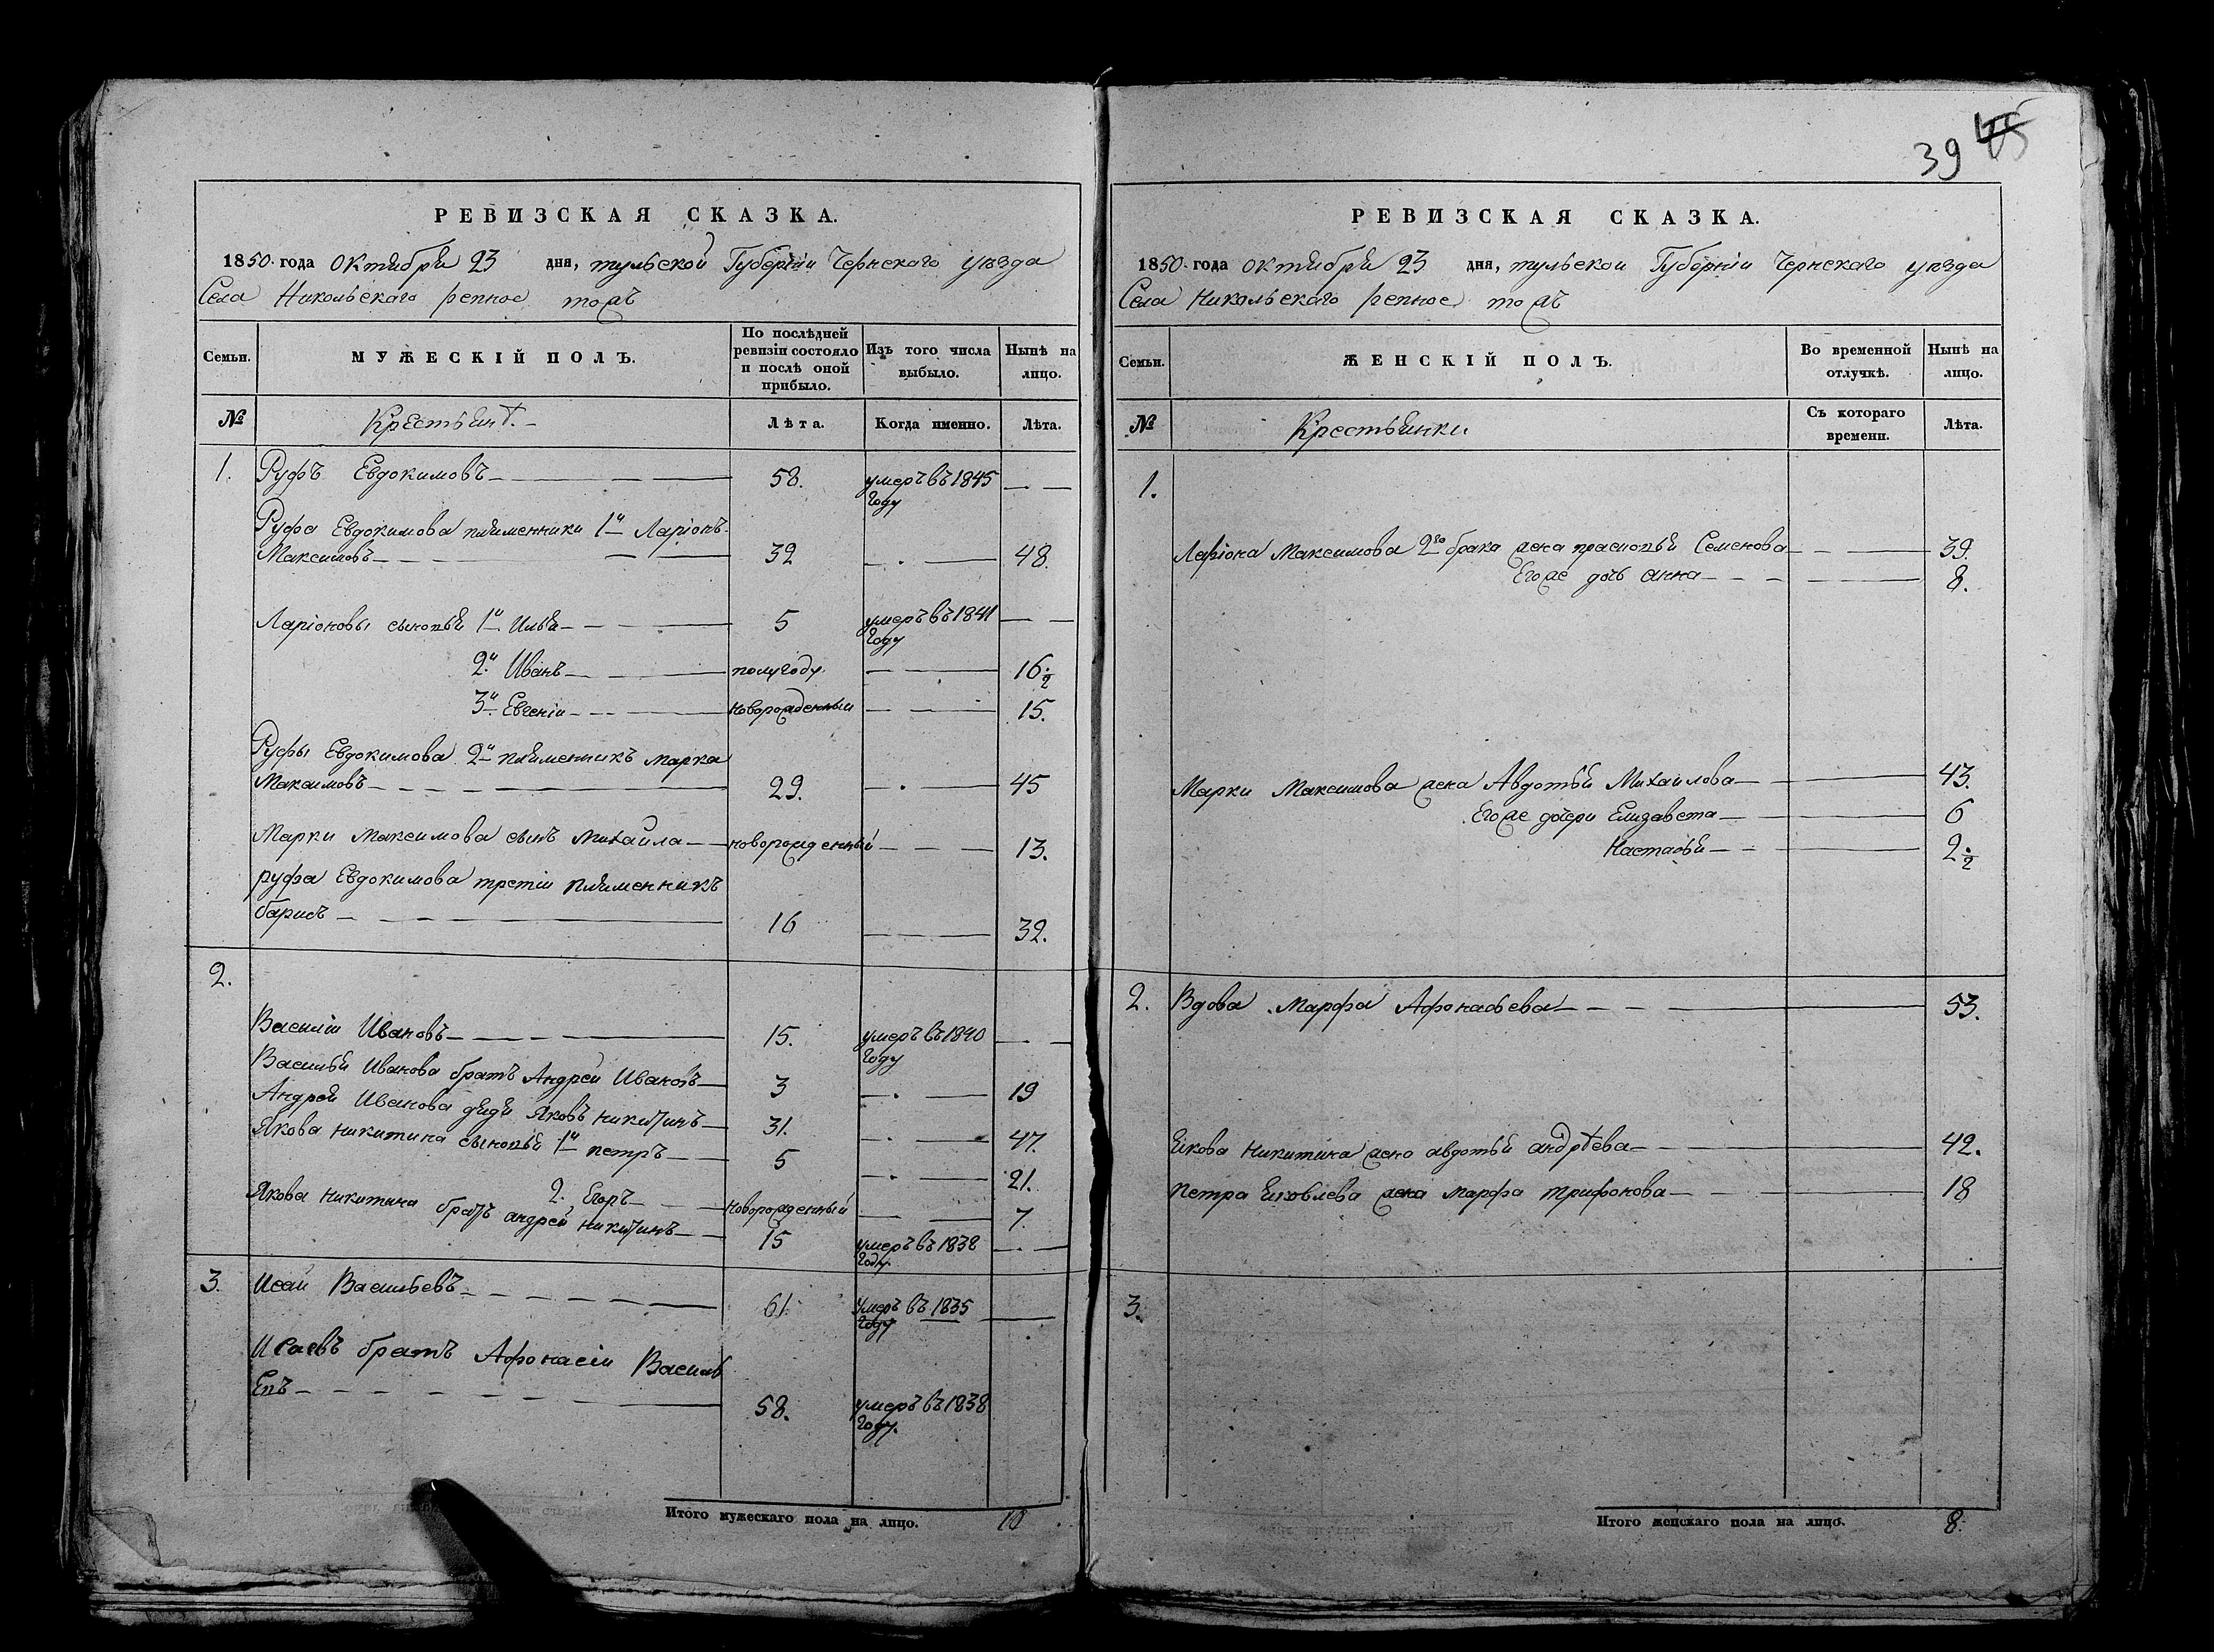 39 45
РЕВИЗСКАЯ СКАЗКА.
1850 года Октября 23 дня, тульской Губерніи Чернскаго уѣзда
Села Никольскаго репное тожъ
Семьи. МУЖЕСКІЙ ПОЛЪ. По послѣдней ревизіи состояло и послѣ оной прибыло. Изъ того числа выбыло. Нынѣ на лицо.
№ Крестьянѣ. Лѣта. Когда именно. Лѣта.
1. Руфъ Евдокимовъ 58. умеръ въ 1845
году
Руфа Евдокимова племенники 1й Ларіонъ
Максимовъ 32 48.
Ларіоновы сыновья 1й Илья 5 умеръ въ 1841
году
2й Иванъ полугоду 16 1/2
3й Евгеніи новорожденныи 15.
Руфы Евдокимова 2й племенникъ Марка
Максимовъ 29. 45
Марки Максимова сынъ Михайла новорожденный 13.
руфа Евдокимова третіи племенникъ
барисъ 16 32.
2.
Василіи Ивановъ 15. умеръ въ 1840
году
Василья Иванова братъ Андрей Ивановъ 3 19
Андрея Иванова дядя Яковъ никитинъ 31. 47.
Якова никитина сыновья 1й петръ 5 21.
2. Егоръ новорожденный 7.
Якова никитина братъ андрей никитинъ 15 умеръ въ 1838
году.
3. Исаи Васильевъ 61. умеръ въ 1835
году
Исаевъ братъ Афонасіи Василь
Евъ 58. умеръ въ 1838
году.
Итого мужескаго пола на лицо. 10
РЕВИЗСКАЯ СКАЗКА.
1850 года октября 23 дня, тульскои Губерніи Чернскаго уѣзда
Села Никольскаго репное тожъ
Семьи. ЖЕНСКІЙ ПОЛЪ. Во временной отлучкѣ. Нынѣ на лицо.
№ Крестьянки Съ котораго времени. Лѣта.
1.
Ларіона Максимова 2го брака жена прасковья Семенова 39.
Егоже дочь анна 8.
Марки Максимова жена Авдотья Михаилова 43.
Егоже дочери Елизавета 6
Настасья 2 1/2
2. Вдова Марфа Афонасьева 53.
Якова Никитина жена авдотья андрѣева 42.
Петра Яковлева жена марфа трифонова 18
3.
Итого женскаго пола на лицо. 8.